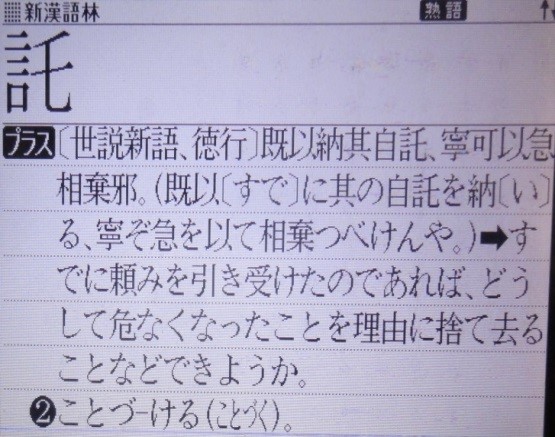 新漢語林 熟語
託
プラス〔世説新語、徳行〕既以納其自託、寧可以急
相棄邪。(既以〔すで〕に其の自託を納〔い〕
る、寧ぞ急を以て相棄つべけんや。)➡す
でに頼みを引き受けたのであれば、どう
して危なくなったことを理由に捨て去る
ことなどできようか。
❷ことづ-ける(ことづく)。